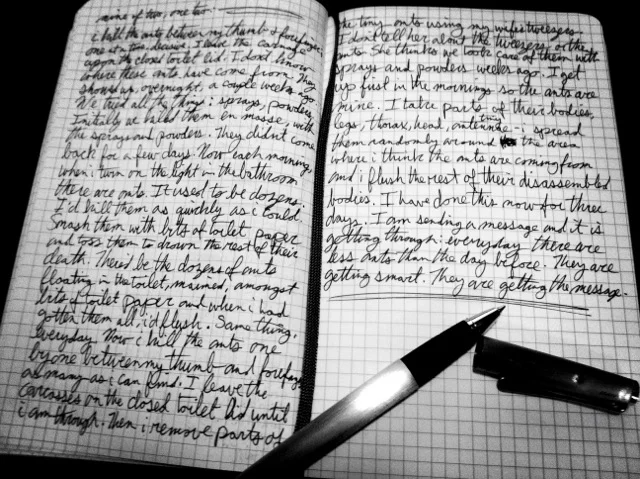 nine of two, one two:
i kill the ants between my thumb & forefinger,
one at a time. deceased. I leave the carnage
upon the closed toilet lid. I don't know
where these ants have come from. They
showed up, overnight, a couple weeks ago.
We tried all the things: sprays, powders,
Initially we killed them en masse, with
the sprays and powders. They didn't come
back for a few days. Now each morning
when i turn on the light in the bathroom
there are ants. It used to be dozens.
I'd kill them as quickly as i could
Smash them with bits of toilet paper
and toss them to drown the rest of their
death. There'd be the dozens of ants
floating in the toilet, maimed, amongst
bits of toilet paper and when i had
gotten them all, i'd flush. Same thing,
everyday. Now i kill the ants one
by one between my thumb and forefinger
as many as i can find. I leave the
carcasses on the closed toilet lid until
i am through. Then i remove parts of
the tiny ants using my wife's tweezers.
I don't tell her about the tweezers or the
ants. She thinks we took care of them with
sprays and powders weeks ago. I get
up first in the mornings so the ants are
mine. I take parts of their bodies,
legs, thorax, head, tiny antennae - i spread
them randomly around the area
where i think the ants are coming from
and i flush the rest of their disassembled
bodies. I have done this now for three
days. I am sending a message and it is
getting through: everyday there are
less ants than the day before. They are
getting smart. They are getting the message.